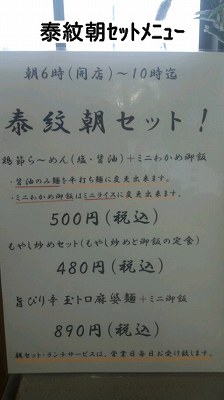 泰紋朝セットメニュー
朝6時(開店)～10時迄
泰紋朝セット!
鶏節ら～めん(塩・醤油)+ミニわかめ御飯
・醤油のみ麺を平打ち麺に変更出来ます。
・ミニわかめ御飯はミニライスに変更出来ます。
500円(税込)
もやし炒めセット(もやし炒めと御飯の定食)
480円(税込)
旨ぴり辛 玉トロ麻婆麺+ミニ御飯
890円(税込)
朝セット・ランチサービスは、営業日毎日お受け致します。